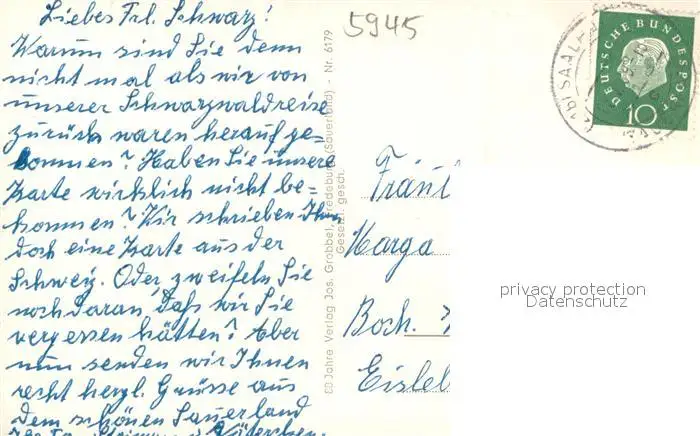 Liebes Frl. Schwarz!
Warum sind Sie denn
nicht mal als wir von
unserer Schwarzwaldreise
zurück waren herauf ge=
kommen? Haben Sie unsere
Karte wirklich nicht be=
kommen? Wir schrieben Ihnen
doch eine Karte aus der
Schweiz. Oder zweifeln Sie
noch daran daß wir Sie
vergessen hätten? Aber
nun senden wir Ihnen
recht herzl. Grüsse aus
dem schönen Sauerland
5945
60 Jahre Verlag Jos. Grobbel, Fredeburg (Sauerland) - Nr. 6179
Gesetzl. gesch.
DEUTSCHE BUNDESPOST
10
Fräul
Marga
Boch.
Eisleb
privacy protection
Datenschutz